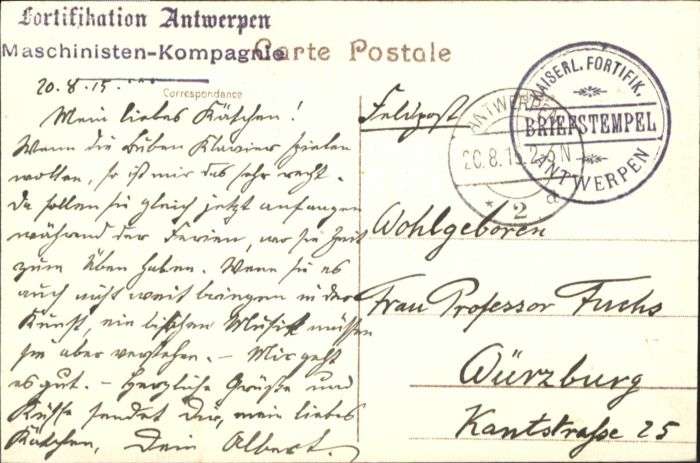 Fortifikation Antwerpen
Maschinisten-Kompagnie
Carte Postale
20.8.15.
Correspondance
Mein liebes Kätchen!
Wenn die Buben Klavier spielen
wollen, so ist mir das sehr recht.
Da sollen sie gleich jetzt anfangen
während der Ferien, wo sie Zeit
zum Üben haben. Wenn sie es
auch nicht weit bringen in der
Kunst, ein bischen Musik müssen
sie aber verstehen. – Mir geht
es gut. – Herzliche Grüße und
Küsse sendet Dir, mein liebes
Kätchen, Dein Albert.
Feldpost
ANTWERPEN
20.8.15.2-3N
* 2 a
KAISERL. FORTIFIK.
BRIEFSTEMPEL
ANTWERPEN
Wohlgeboren
Frau Professor Fuchs
Würzburg
Kantstraße 25